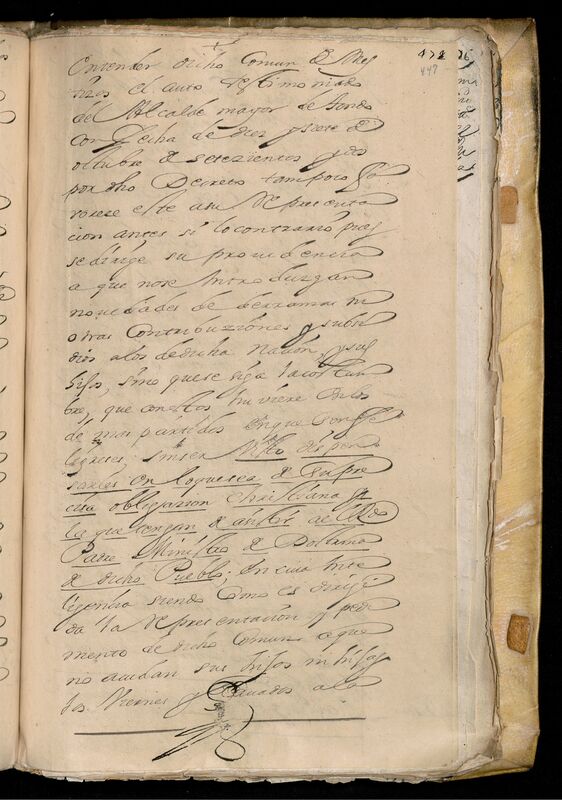 472
447
Entender dicho Comun de Mes
tizos el auto testimoniado
del Alcalde mayor de
con fecha de diez y siete de
octubre de setezientos y dos
por dho Decreto tampoco fa
vorese este a su Representa
cion antes si lo contrario pues
se dirige su providencia
a que nose Introduzgan
novedades de derramas ni
otras Contribuziones y subsi
dios alos de dicha Nasion, y sus
hijos, sino que se siga la costum
bre, que con ellos huviere en los
de mas partidos En que son fe
ligreses sin ser visto dispen
sarles en loque sea de su pre
cisa obligazion Christiana
la que tengan de asistir
Padre Ministro de Doctrina
de dicho Pueblo; En cuia Inte
ligencia siendo como es dirigi
da la Representacion y pedi
mento de dicho Comun a que
no acudan sus hijos ni hijas
los Viernes y Savados ala